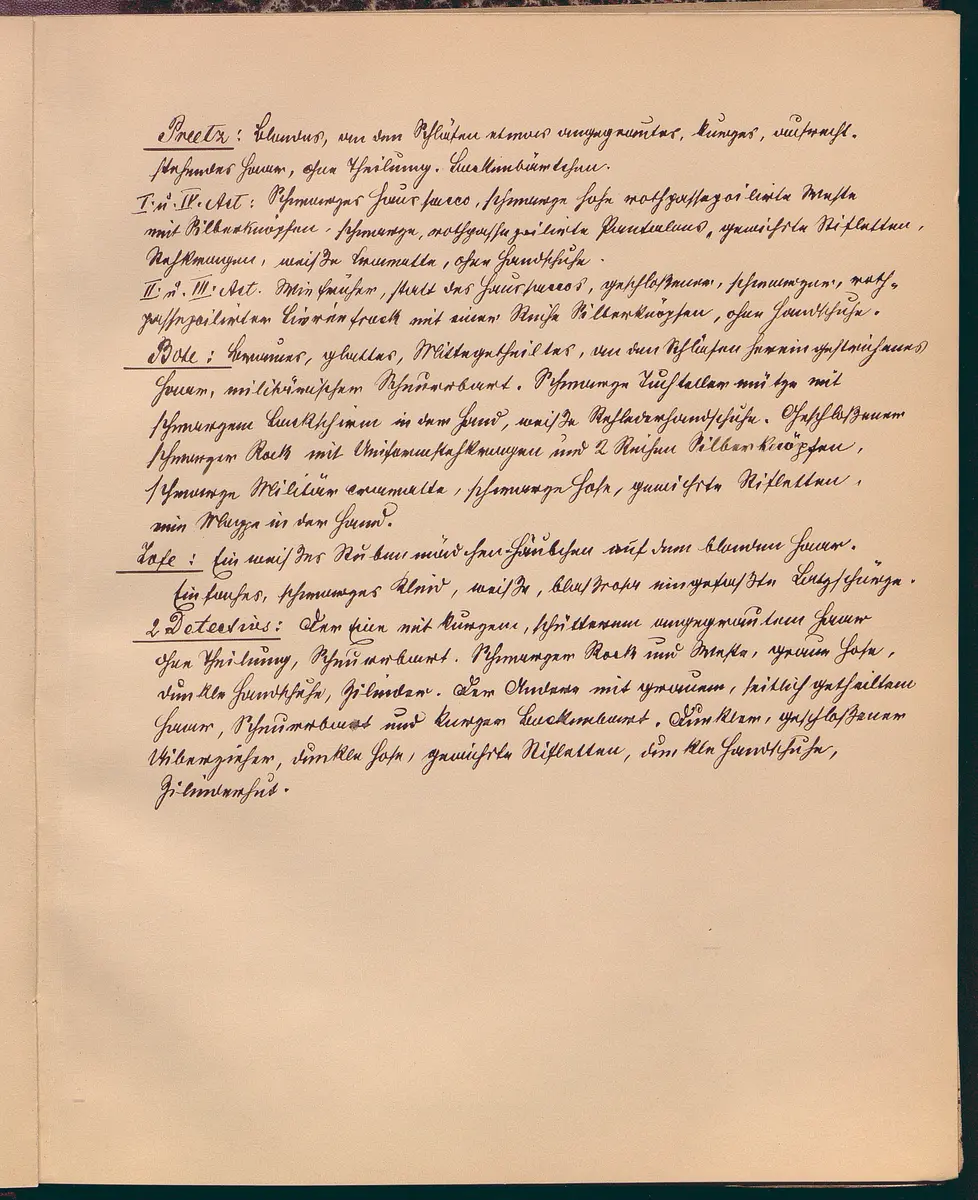 Preetz: Blondes, an den Schläfen etwas angegrautes, kurzes, aufrecht-
stehendes Haar, ohne Theilung. Backenbärtchen.
I. u. IV. Act: Schwarzes Haussacco, schwarze hohe rothpassepoilirte Weste
mit Silberknöpfen, schwarze, rothpassepoilirte Pantalons, gewichste Stifletten,
Stehkragen, weiße Cravatte, ohne Handschuhe.
II. u. III. Act. Wie früher, statt des Haussaccos, geschloßener, schwarzer, roth-
passepoilirter Livreefrack mit einer Reihe Silberknöpfen, ohne Handschuhe.
Bote: Braunes, glattes, Mittegetheiltes, an den Schläfen hereingestrichenes
Haar, militärischer Schnurrbart. Schwarze Tuchtellermütze mit
schwarzem Lackschirm in der Hand, weiße Rehlederhandschuhe. Geschloßener
schwarzer Rock mit Uniformstehkragen und 2 Reihen Silberknöpfen,
schwarze Militärcravatte, schwarze Hose, gewichste Stifletten,
eine Mappe in der Hand.
Zofe: Ein weißes Stubenmädchen-Häubchen auf dem blonden Haar.
Einfaches, schwarzes Kleid, weiße, blaßrosa eingefaßte Latzschürze.
2 Detectivs: Der Eine mit kurzem, schütterem angegrautem Haar
ohne Theilung, Schnurrbart. Schwarzer Rock und Weste, graue Hose,
dunkle Handschuhe, Zilinder. Der Andere mit grauem, seitlich getheiltem
Haar, Schnurrbart und kurzer Backenbart. Dunkler, geschloßener
Uiberzieher, dunkle Hose, gewichste Stifletten, dunkle Handschuhe,
Zilinderhut.